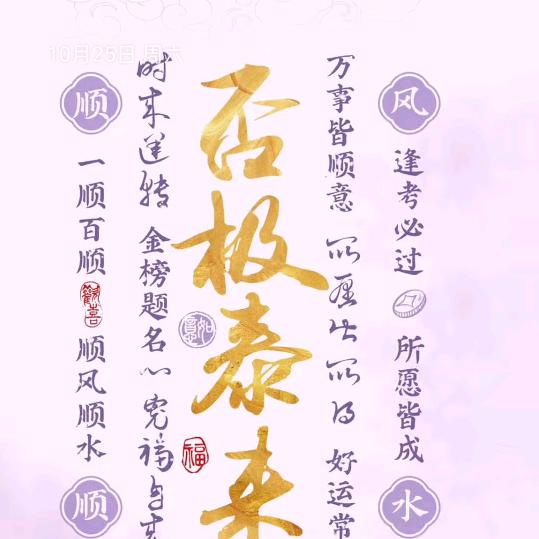 10月25日 周六
风
逢考必过 所愿皆成
水
万事皆顺意 所 所得 好运常
否极泰来
如意
福
时来运转 金榜题名 心宽福自来
顺
一顺百顺
歡喜
顺风顺水
顺